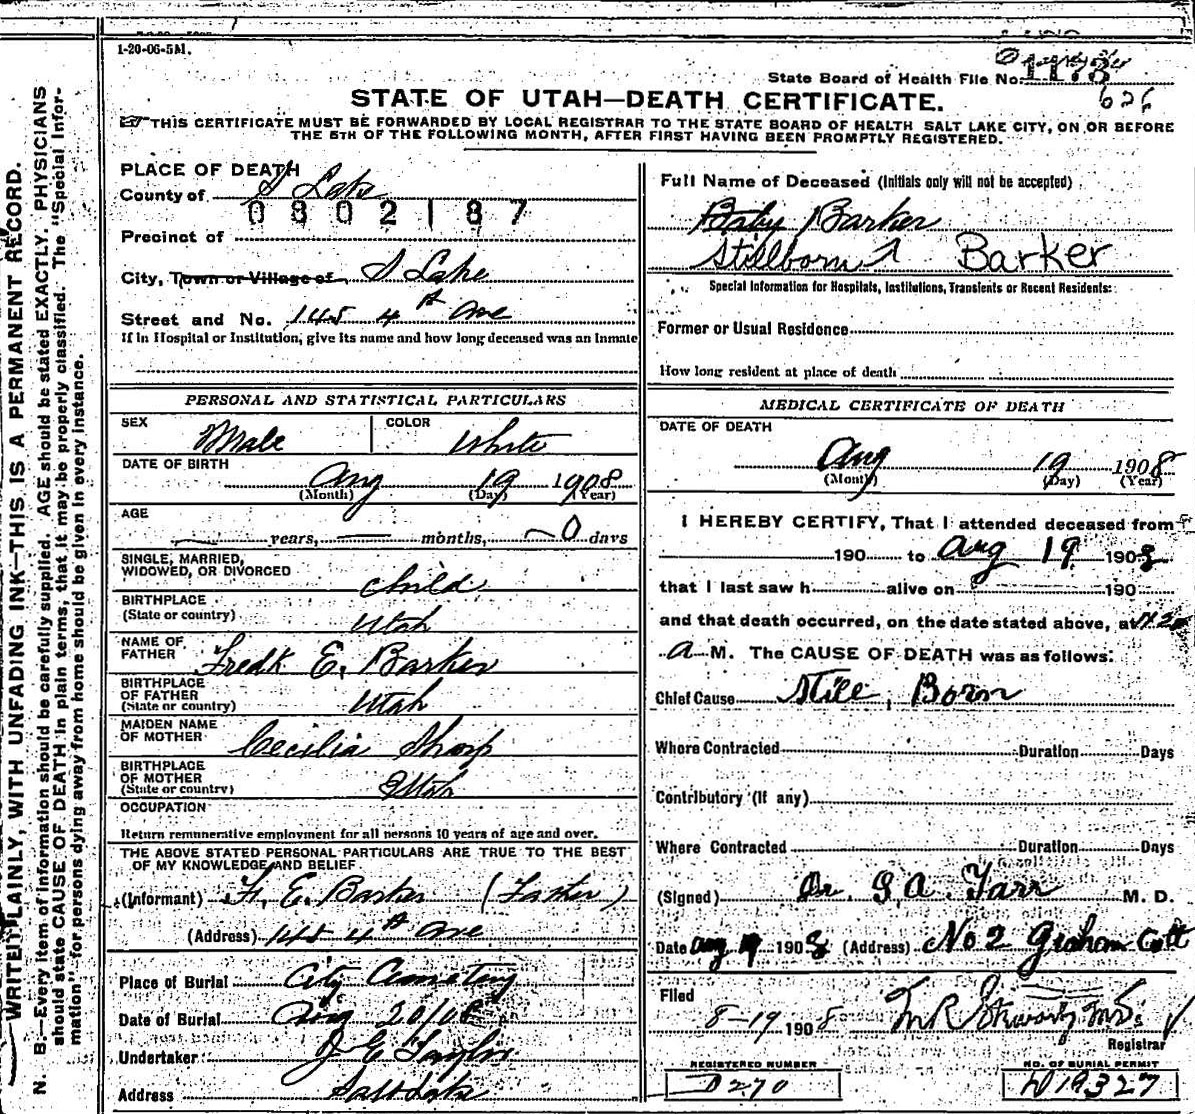 1-20-06-5M.
State Board of Health File No. 1178
626
STATE OF UTAH—DEATH CERTIFICATE.
THIS CERTIFICATE MUST BE FORWARDED BY LOCAL REGISTRAR TO THE STATE BOARD OF HEALTH SALT LAKE CITY, ON OR BEFORE
THE 5TH OF THE FOLLOWING MONTH, AFTER FIRST HAVING BEEN PROMPTLY REGISTERED.
WRITE PLAINLY, WITH UNFADING INK—THIS IS A PERMANENT RECORD.
N. B.—Every item of information should be carefully supplied. AGE should be stated EXACTLY. PHYSICIANS
should state CAUSE OF DEATH in plain terms, that it may be properly classified. The "Special Infor-
mation" for persons dying away from home should be given in every instance.
PLACE OF DEATH
County of S Lake
0802187
Precinct of
City, Town or Village of S Lake
Street and No. 145 4th Ave
If in Hospital or Institution, give its name and how long deceased was an inmate
PERSONAL AND STATISTICAL PARTICULARS
SEX Male COLOR White
DATE OF BIRTH
Aug 19 1908
(Month) (Day) (Year)
AGE
years, months, 0 days
SINGLE, MARRIED,
WIDOWED, OR DIVORCED child
BIRTHPLACE
(State or country) Utah
NAME OF
FATHER Fredk E. Barker
BIRTHPLACE
OF FATHER
(State or country) Utah
MAIDEN NAME
OF MOTHER Cecilia Sharp
BIRTHPLACE
OF MOTHER
(State or country) Utah
OCCUPATION
Return remunerative employment for all persons 10 years of age and over.
THE ABOVE STATED PERSONAL PARTICULARS ARE TRUE TO THE BEST
OF MY KNOWLEDGE AND BELIEF
(Informant) F. E. Barker (Father)
(Address) 145 4th Ave
Place of Burial City Cemetery
Date of Burial Aug 20/08
Undertaker J E Taylor
Address Salt Lake
Full Name of Deceased (Initials only will not be accepted)
Baby Barker
Stillborn Barker
Special Information for Hospitals, Institutions, Transients or Recent Residents:
Former or Usual Residence
How long resident at place of death
MEDICAL CERTIFICATE OF DEATH
DATE OF DEATH
Aug 19 1908
(Month) (Day) (Year)
I HEREBY CERTIFY, That I attended deceased from
190 to Aug 19 1908
that I last saw h alive on 190
and that death occurred, on the date stated above, at
A M. The CAUSE OF DEATH was as follows:
Chief Cause Still Born
Where Contracted Duration Days
Contributory (If any)
Where Contracted Duration Days
(Signed) Dr. G. A. Farr M. D.
Date Aug 19 1908 (Address) No 2 Graham Cott
Filed
8-19 1908
Registrar
REGISTERED NUMBER
D270
NO. OF BURIAL PERMIT
D19327